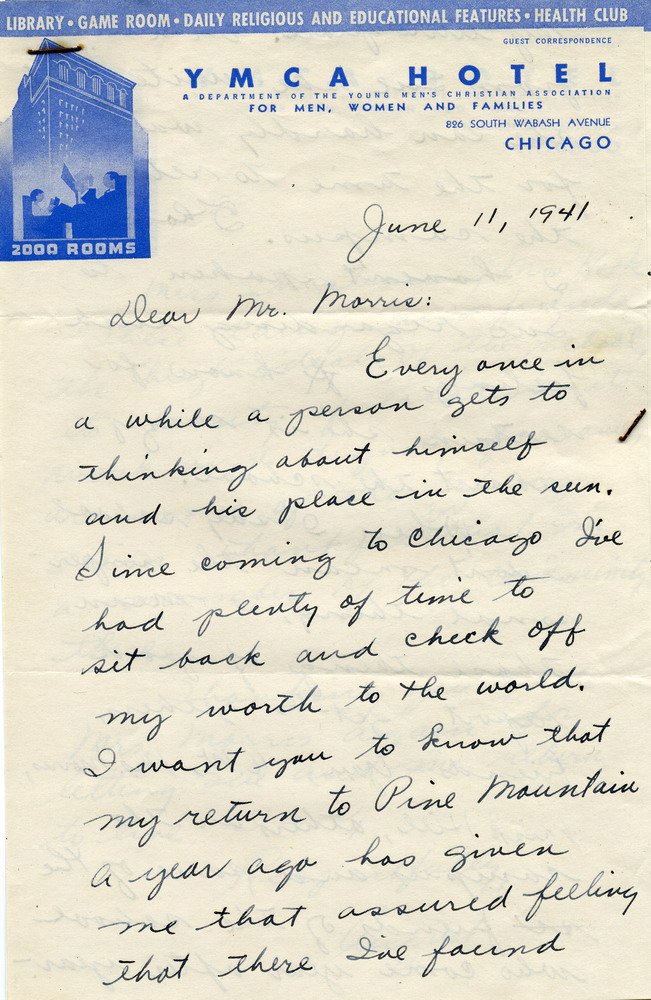 LIBRARY • GAME ROOM • DAILY RELIGIOUS AND EDUCATIONAL FEATURES • HEALTH CLUB
GUEST CORRESPONDENCE
YMCA HOTEL
A DEPARTMENT OF THE YOUNG MEN'S CHRISTIAN ASSOCIATION
FOR MEN, WOMEN AND FAMILIES
826 SOUTH WABASH AVENUE
CHICAGO
2000 ROOMS
June 11, 1941
Dear Mr. Morris:
Every once in
a while a person gets to
thinking about himself
and his place in the sun.
Since coming to Chicago I've
had plenty of time to
sit back and check off
my worth to the world.
I want you to know that
my return to Pine Mountain
a year ago has given
me that assured feeling
that there I've found